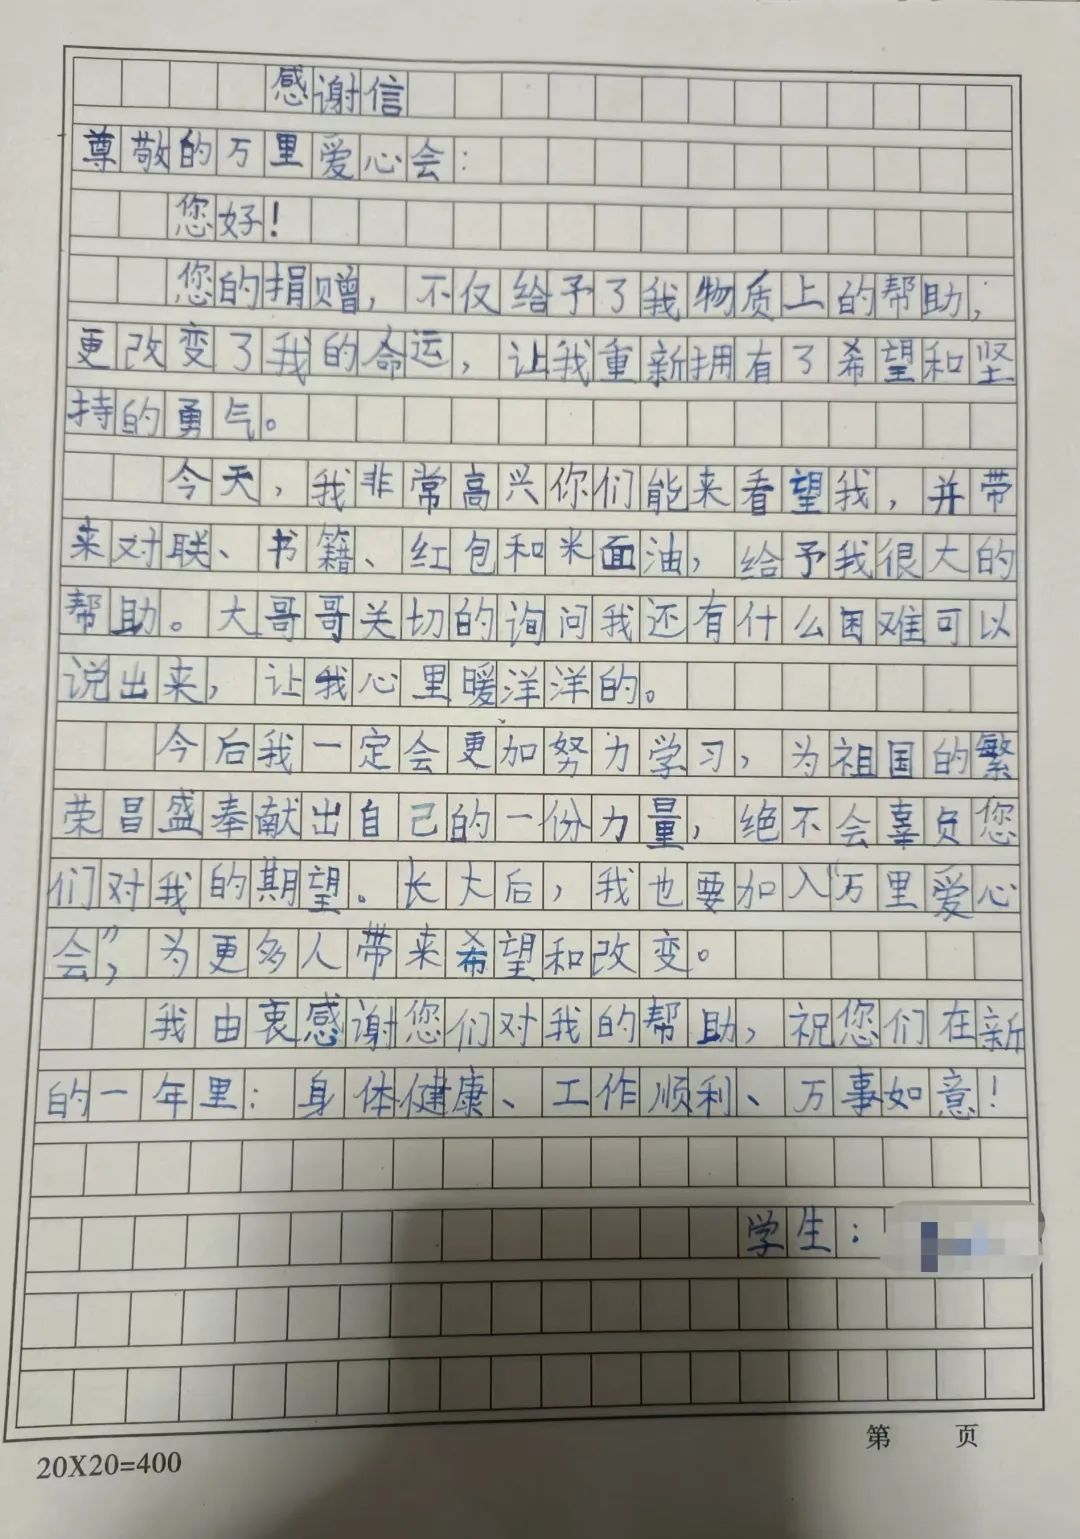 感谢信
尊敬的万里爱心会：
您好！
您的捐赠，不仅给予了我物质上的帮助，
更改变了我的命运，让我重新拥有了希望和坚
持的勇气。
今天，我非常高兴你们能来看望我，并带
来对联、书籍、红包和米面油，给予我很大的
帮助。大哥哥关切的询问我还有什么困难可以
说出来，让我心里暖洋洋的。
今后我一定会更加努力学习，为祖国的繁
荣昌盛奉献出自己的一份力量，绝不会辜负您
们对我的期望。长大后，我也要加入“万里爱心
会”，为更多人带来希望和改变。
我由衷感谢您们对我的帮助，祝您们在新
的一年里：身体健康、工作顺利、万事如意！
学生：
第 页
20X20=400